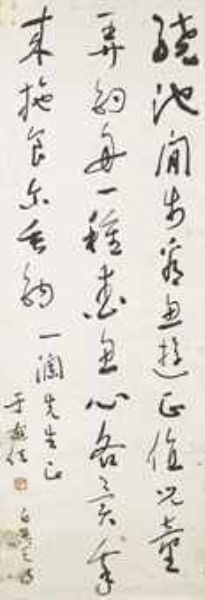 繞池閒步看魚遊正值兒童
弄釣舟一種愛魚心各異我
來施食尔垂鉤
先生正
于右任
白樂天詩